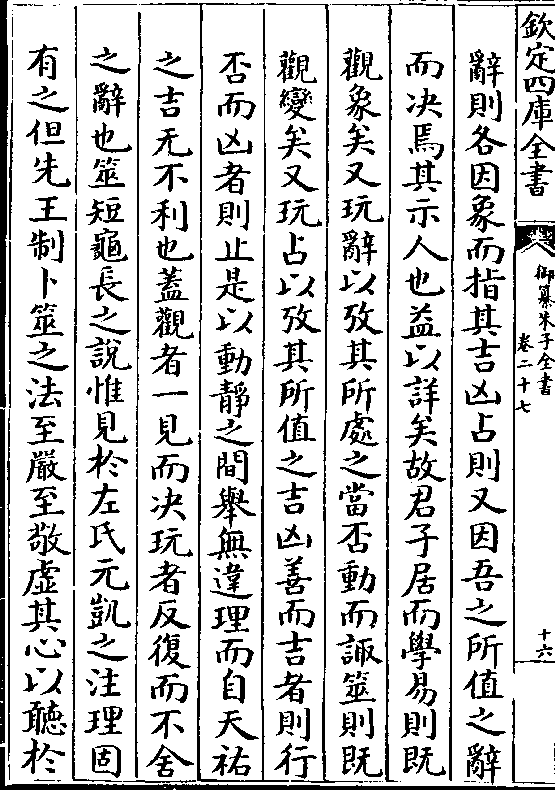 欽定四庫全書
御纂朱子全書
卷二十七
十六
辭則各因象而指其吉凶占則又因吾之所值之辭
而决焉其示人也益以詳矣故君子居而學易則既
觀象矣又玩辭以攷其所處之當否動而諏筮則既
觀變矣又玩占以攷其所值之吉凶善而吉者則行
否而凶者則止是以動靜之間舉無違理而自天祐
之吉无不利也蓋觀者一見而决玩者反復而不舍
之辭也筮短龜長之說惟見於左氏元凱之注理固
有之但先王制卜筮之法至嚴至敬虛其心以聽於